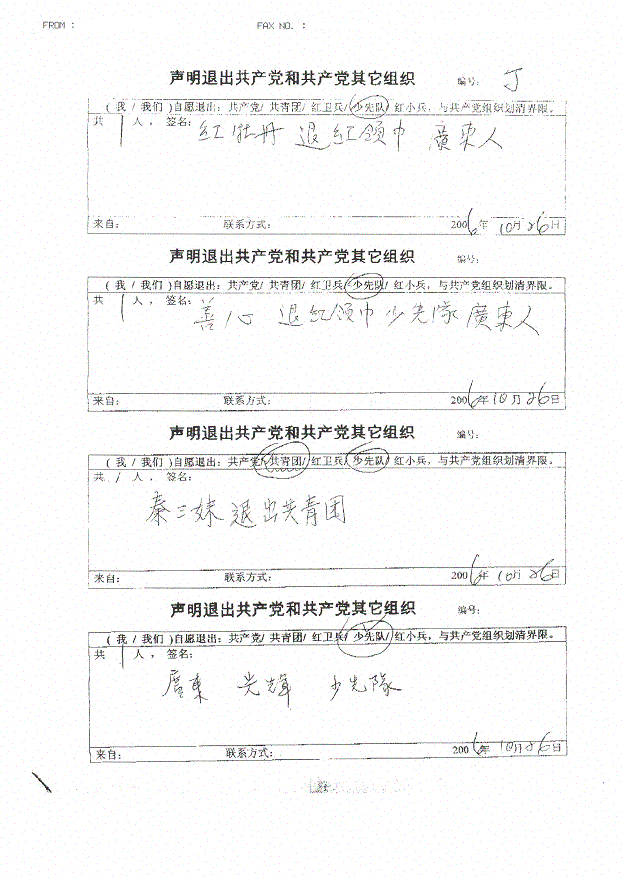 FROM :	FAX NO. :
声明退出共产党和共产党其它组织 编号:
( 我 / 我们 )自愿退出: 共产党/ 共青团/ 红卫兵/ 少先队/ 红小兵, 与共产党组织划清界限。
共 1 人, 签名:
红牡丹 退红领巾 廣東人
来自: 联系方式: 2006年10月26日
声明退出共产党和共产党其它组织 编号:
( 我 / 我们 )自愿退出: 共产党/ 共青团/ 红卫兵/ 少先队/ 红小兵, 与共产党组织划清界限。
共 1 人, 签名:
善心 退红领巾少先隊廣東人
来自: 联系方式: 2006年10月26日
声明退出共产党和共产党其它组织 编号:
( 我 / 我们 )自愿退出: 共产党/ 共青团/ 红卫兵/ 少先队/ 红小兵, 与共产党组织划清界限。
共 1 人, 签名:
秦三妹 退出共青团
来自: 联系方式: 2006年10月26日
声明退出共产党和共产党其它组织 编号:
( 我 / 我们 )自愿退出: 共产党/ 共青团/ 红卫兵/ 少先队/ 红小兵, 与共产党组织划清界限。
共 1 人, 签名:
廣東 光輝 少先隊
来自: 联系方式: 2006年10月26日